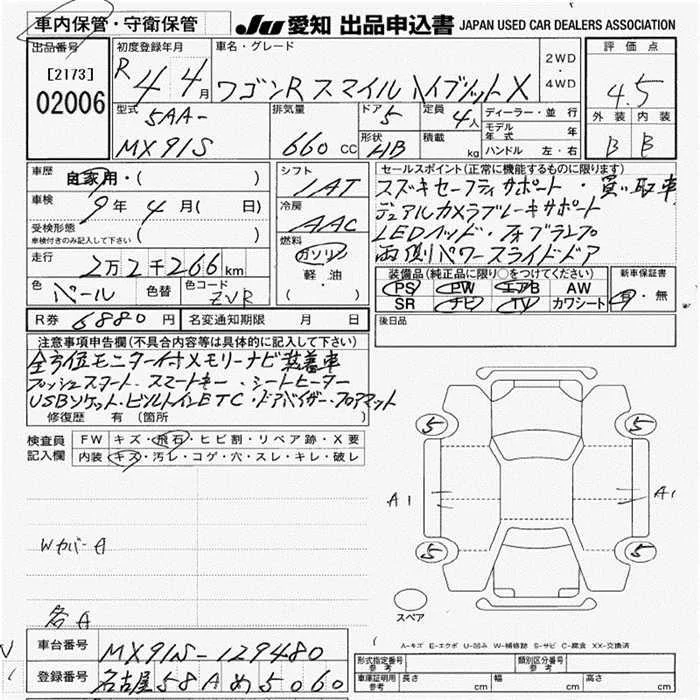 車内保管・守衛保管
JU 愛知 出品申込書 JAPAN USED CAR DEALERS ASSOCIATION
出品番号
[2173]
02006
初度登録年月
R4 4月
車名・グレード
ワゴンR スマイル ハイブリッド X
2WD
・
4WD
評価点
4.5
外装 内装
B B
型式
5AA-
MX91S
排気量
660 CC
ドア
5
形状
HB
定員
4人
積載
kg
ディーラー・並行
モデル年式 年
ハンドル 左・右
車歴
自家用・( )
車検
9年 4月( 日)
受検形態
車検付きのみ記入して下さい ( )
走行
2万2千266km
色
パール
色替
色コード
ZVR
シフト
IAT
冷房
AAC
燃料
ガソリン
軽・油
( )
セールスポイント(正常に機能するものに限ります)
スズキセーフティサポート・買い取車
デュアルカメラブレーキサポート
LEDヘッド・フォグランプ
両側パワースライドドア
装備品(純正品に限り○をつけてください)
PS PW エアB AW
SR ナビ TV カワシート
新車保証書
有・無
R券 6880円
名変通知期限 月 日
後日品
注意事項申告欄(不具合内容等は具体的に記入して下さい)
全方位モニター付メモリーナビ装着車
プッシュスタート・スマートキー・シートヒーター
USBソケット・ビルトインETC・ドアバイザー・フロアマット
修復歴 有 (箇所 )
検査員
記入欄
FW キズ・飛石・ヒビ割・リペア跡・X要
内装 キズ・汚レ・コゲ・穴・スレ・キレ・破レ
Wカバー A
各A
5 5
A1 A1
5 5
スペア
A-キズ E-エクボ U-凹み W-補修跡 S-サビ C-腐食 XX-交換済
車台番号 MX91S-129480
登録番号 名古屋58Aめ5060
形式指定番号
参考
類別区分番号
参考
車庫証明用
参考
長さ cm 幅 cm 高さ cm